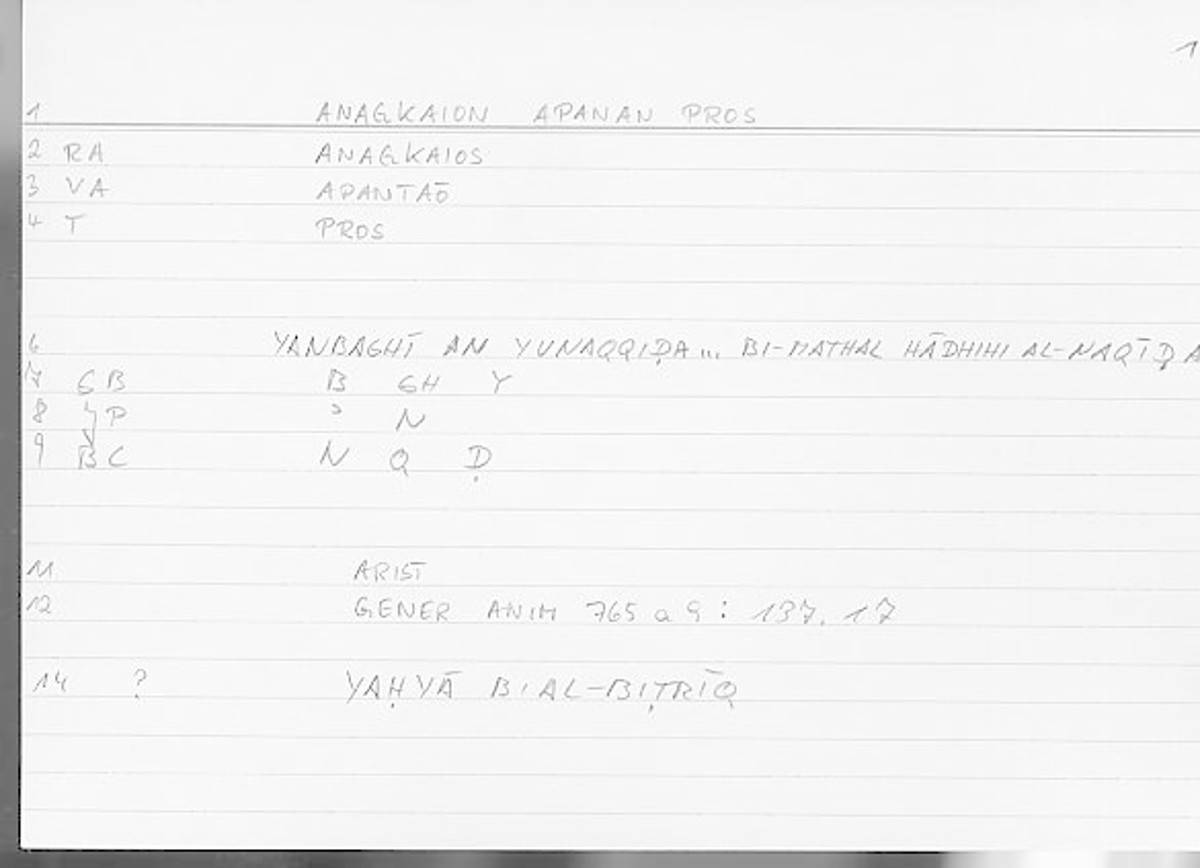 1
1 ANAGKAION APANAN PROS
2 RA ANAGKAIOS
3 VA APANTAŌ
4 T PROS
6 YANBAGHĪ AN YUNAQQIḌA... BI-MATHAL HĀDHIHI AL-NAQĪḌA
7 GB B GH Y
8 P ʾ N
9 BC N Q Ḍ
11 ARIST
12 GENER ANIM 765 a 9 : 137, 17
14 ? YAḤYĀ B. AL-BIṬRĪQ